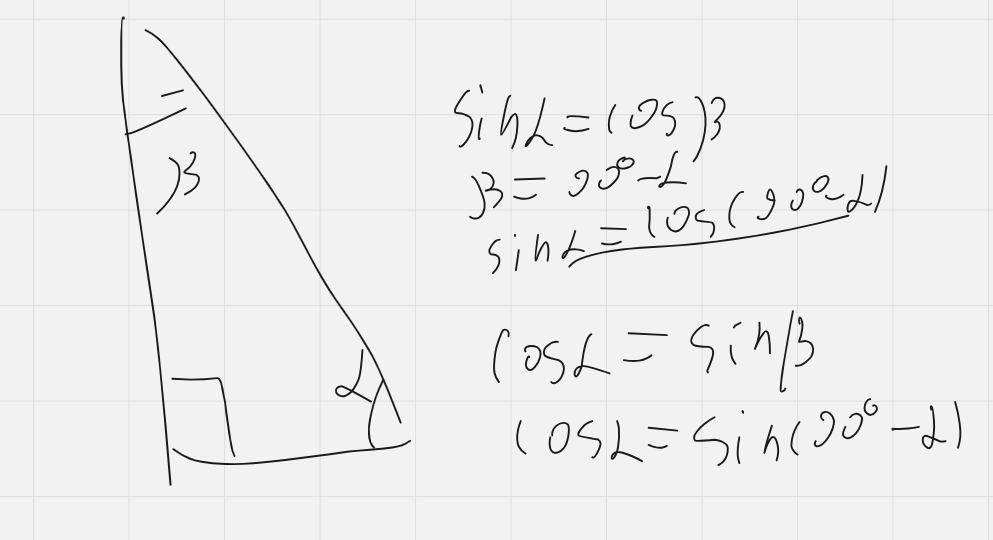 β
α
sinα = cosβ
β = 90° - α
sinα = cos(90° - α)
cosα = sinβ
cosα = sin(90° - α)